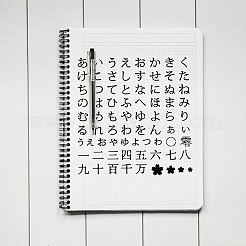 あいうえおかきく
けこさしすせそた
ちつてとなにぬね
のはひふへほまみ
むめもやゆよらり
るれろわをんぁぃ
ぅぇぉゃゅょっゎ〇零
一二三四五六七八
九十百千万